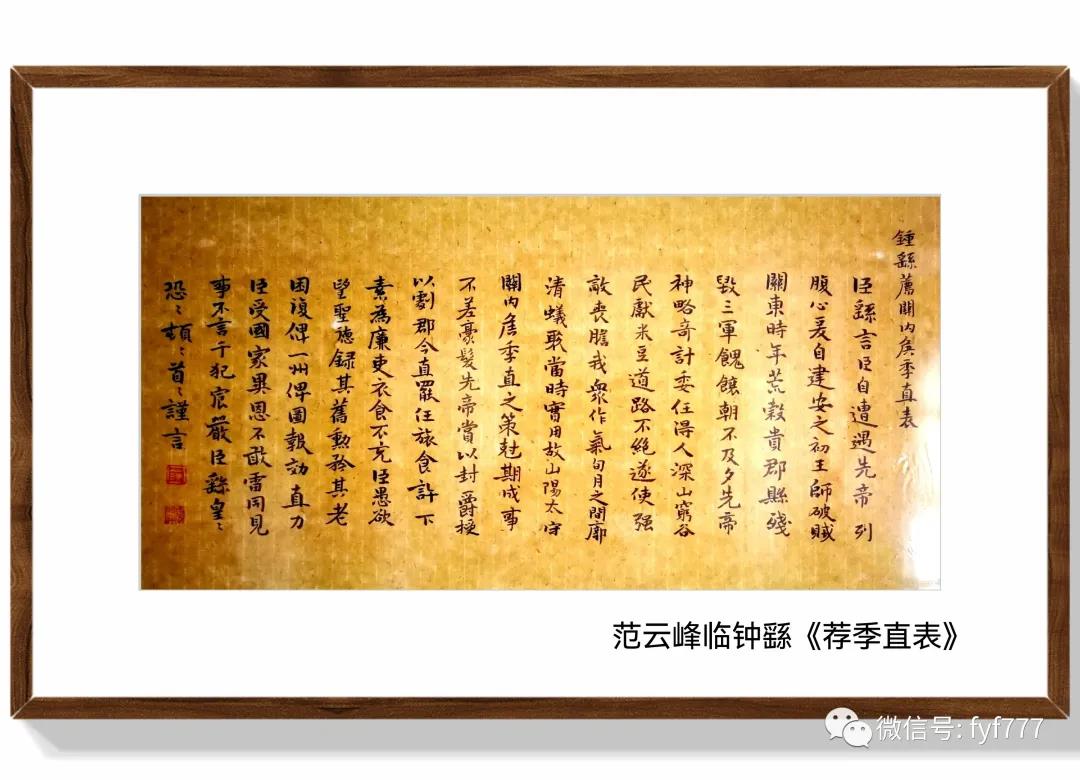 鍾繇薦關內侯季直表
臣繇言臣自遭遇先帝列
腹心爰自建安之初王師破賊
關東時年荒穀貴郡縣殘
毀三軍餽饟朝不及夕先帝
神略奇計委任得人深山窮谷
民獻米豆道路不絕遂使强
敵喪膽我衆作氣旬月之間廓
清蟻聚當時實用故山陽太守
關內侯季直之策尅期成事
不差豪髮先帝賞以封爵授
以劇郡今直罷任旅食許下
素為廉吏衣食不充臣愚欲
望聖德錄其舊勳矜其老
困復俾一州俾圖報効直力
臣受國家異恩不敢雷同見
事不言干犯宸嚴臣繇皇〻
恐〻頓〻首〻謹言
范云峰临钟繇《荐季直表》
微信号: fyf777